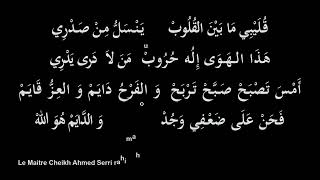 قُلَيْبِي مَا بَيْنَ القُلُوبْ يَنْسَلُّ مِنْ صَدْرِي
هَذَا الهَوَى إِلُه حُرُوبْ مَنْ لاَ دَرَى يَدْرِي
أَمْسَ تَصْبَحْ صَبَّحْ تَرْبَحْ وَ الفَرْحُ دَايَمْ وَ العِزُّ قَايَمْ
فَحَنْ عَلَى ضَعْفِي وَجُدْ وَ الدَّايَمْ هُوَ اللهْ
Le Maitre Cheikh Ahmed Serri